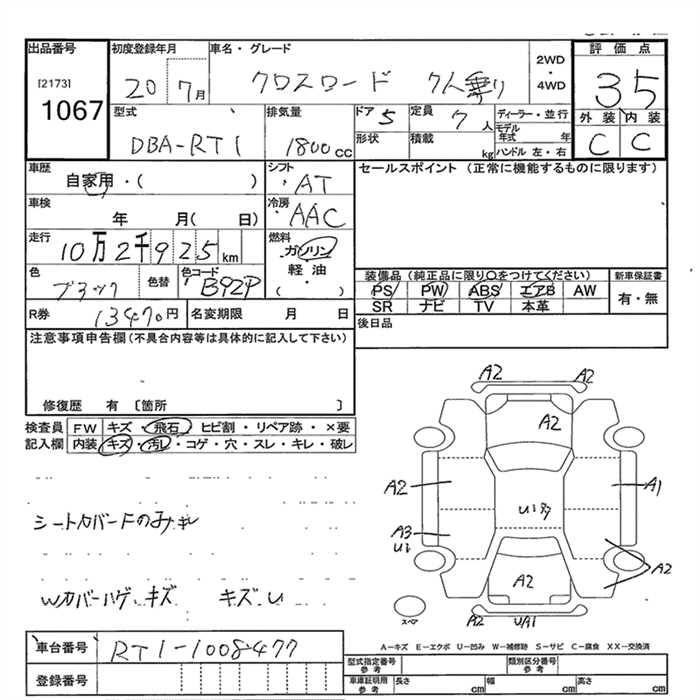 出品番号
[2173]
1067
初度登録年月
20 7月
車名・グレード
クロスロード 7人乗り
2WD
・
4WD
評価点
3 5
外装 内装
C C
型式
DBA-RT1
排気量
1800cc
ドア 5
定員 7人
ディーラー・並行
モデル年式 年
形状
積載 kg
ハンドル 左・右
車歴
自家用・( )
シフト
・AT
セールスポイント (正常に機能するものに限ります)
車検
年 月( 日)
冷房
・AAC
走行
10万2千925km
燃料
ガソリン
軽油
( )
色
ブラック
色替
色コード
B92P
装備品(純正品に限り○をつけてください)
PS PW ABS エアB AW
SR ナビ TV 本革
新車保証書
有・無
R券
13470円
名変期限 月 日
後日品
注意事項申告欄(不具合内容等は具体的に記入して下さい)
修復歴 有〔箇所 〕
検査員記入欄
FW キズ・飛石・ヒビ割・リペア跡・×要
内装 キズ・汚レ・コゲ・穴・スレ・キレ・破レ
A2 A2
A2
A2 A1
U1
A3
U1
A2
A2
A2 UA1
スペア
Wカバーハゲ、キズ キズ、U
A-キズ E-エクボ U-凹み W-補修跡 S-サビ C-腐食 XX-交換済
車台番号
RT1-1008477
登録番号
型式指定番号
参考
類別区分番号
参考
車庫証明用
参考
長さ cm 幅 cm 高さ cm